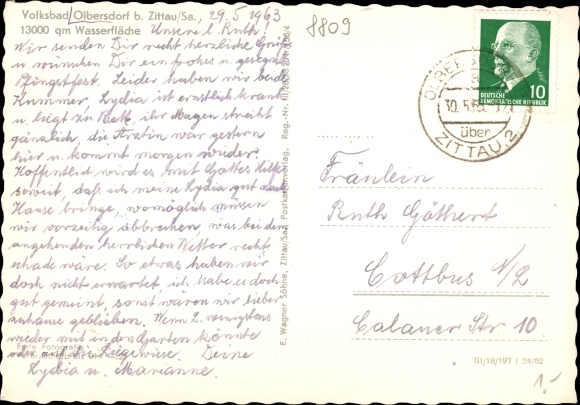 Volksbad Olbersdorf b. Zittau/Sa., 29.5.1963
13000 qm Wasserfläche Unsere l. Ruth!
Wir senden Dir recht herzliche Grüße
u. wünschen Dir ein frohes u. gesegn.
Pfingstfest. Leider haben wir beide
Kummer, Lydia ist ernstlich krank
u. liegt zu Bett, ihr Magen streikt
gänzlich, die Ärztin war gestern
hier u. kommt morgen wieder.
Hoffentlich wird es mit Gottes Hilfe
soweit, daß ich meine Lydia gut nach
Hause bringe, womöglich müssen
wir vorzeitig abbrechen, was bei dem
angehenden herrlichen Wetter recht
schade wäre. So etwas haben wir
doch nicht erwartet, ich habe es doch
gut gemeint, sonst wären wir lieber
zuhause geblieben. Wenn L. wenigstens
wieder mit in den Garten könnte
oder auf die Liegewiese. Deine
Lydia u. Marianne.
Echte Fotografie
E. Wagner Söhne, Zittau/Sa., Postkartenverlag,
8809
DEUTSCHE
DEMOKRATISCHE REPUBLIK
10
OLBERSDORF
30.5.63
über
ZITTAU 2
Fräulein
Ruth Göthert
Cottbus N/2
Calauer Str 10
III/18/197 I 24/62
1.-